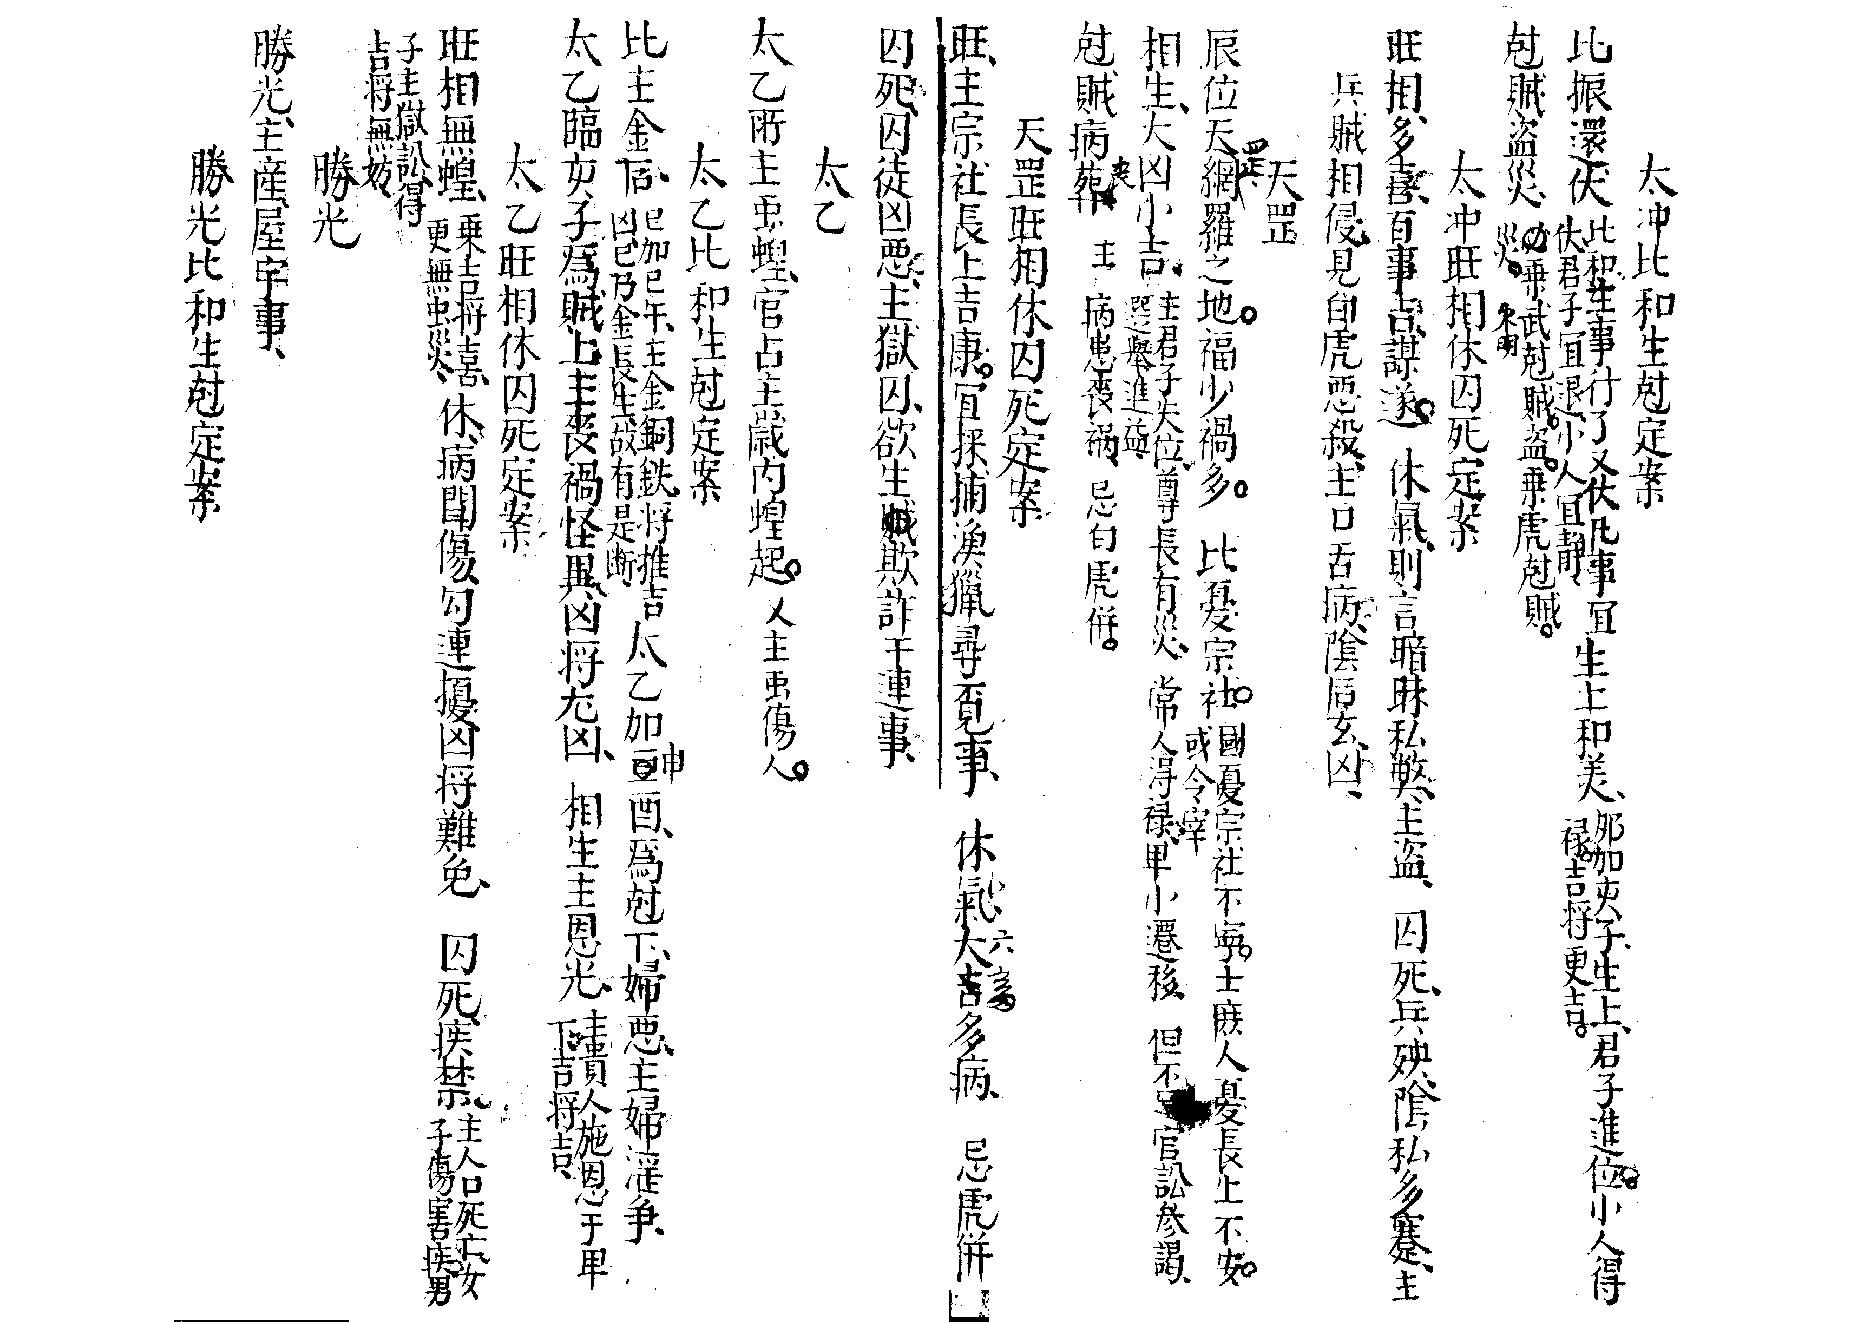 太冲比和生尅定案
比振還伏 比和生事行了又伏凡事
伏君子宜退小人宜静 宜生上和美、 卯加夾子、生上、君子進位小人得
禄吉将更吉。
尅賊盗災、 勿乗武尅賊盗。乗虎尅賊。
災。
太冲旺相休囚死定案
旺相、多喜百事吉謀遂 休氣、則言暗昧私弊、主盗、 囚死、兵殃、陰私多蹇、主
兵賊相侵、見白虎悪殺、主口舌病、陰后玄凶、
天罡
辰位天網羅之地福少禍多。 比憂宗社。 國憂宗社不寧。士庶人憂長上不安。
或令宰
相生、大凶小吉、 主君子失位、尊長有災、常人得禄、卑小遷移、 但不 官訟參謁、
選舉進益
尅賊病葬 主 病患喪禍、忌白虎併。
喪
天罡旺相休囚死定案
旺、主宗社長上吉康。宜採捕漁獵尋覓事、 休氣、大吉多病、 忌虎併
囚死、囚徒凶悪、主獄囚、欲生賊欺詐干連事、
太乙
太乙所主虫蝗、官占主歲内蝗起。 人主虫傷人。
太乙比和生尅定案
比主金后、 巳加巳午、主金銅鉄、将推吉
凶、巳乃金長生、故有是断 太乙加 酉、爲尅下、婦悪、主婦淫争、
申
太乙臨女子爲賊上主喪禍怪異、凶将尤凶、 相生主恩光、 主貴人施恩于卑
下、吉将吉、
太乙旺相休囚死定案
旺相無蝗、 乗吉将喜、
更無虫災、 休、病間傷、勾連擾凶将難免、 囚死、疾禁、 主人口死亡、女
子傷害疾、男
子主獄訟、得
吉将無妨、
勝光
勝光、主産、屋宇事、
勝光比和生尅定案